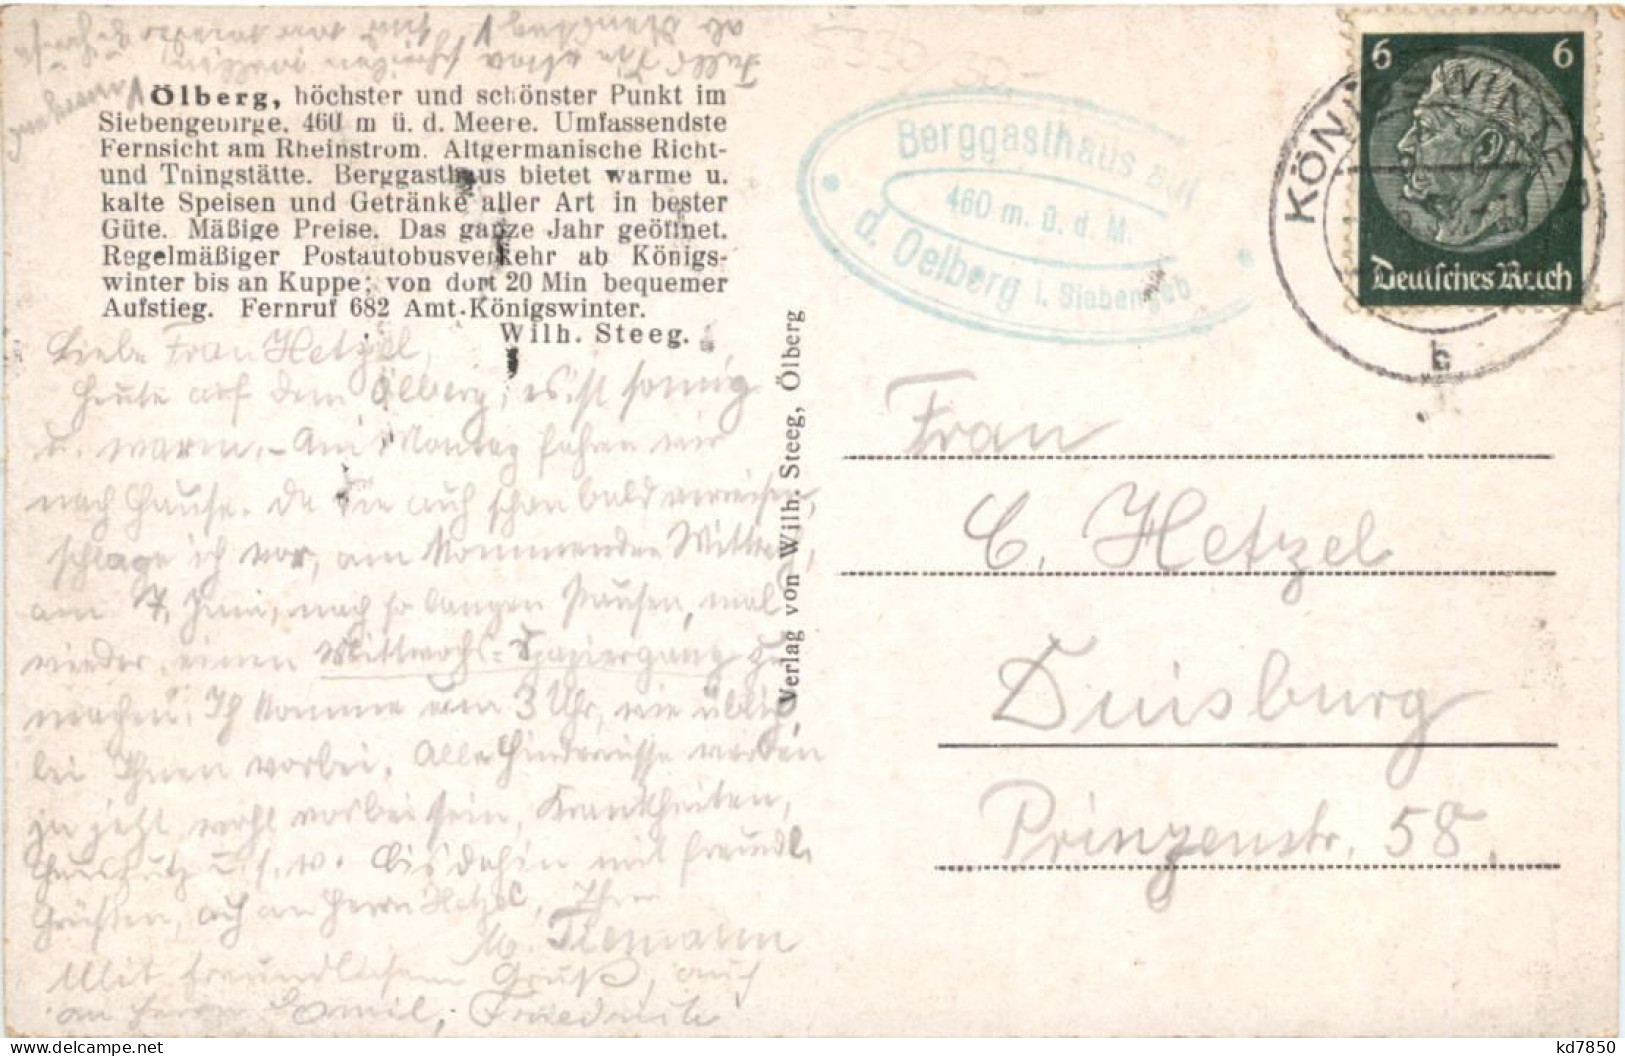 Ölberg, höchster und schönster Punkt im
Siebengebirge. 460 m ü. d. Meere. Umfassendste
Fernsicht am Rheinstrom. Altgermanische Richt-
und Tningstätte. Berggasthaus bietet warme u.
kalte Speisen und Getränke aller Art in bester
Güte. Mäßige Preise. Das ganze Jahr geöffnet.
Regelmäßiger Postautobusverkehr ab Königs-
winter bis an Kuppe; von dort 20 Min bequemer
Aufstieg. Fernruf 682 Amt Königswinter.
Wilh. Steeg.
Liebe Frau Hetzel,
Heute auf dem Ölberg, es ist sonnig
u. warm. - Am Montag fahren wir
nach Hause. Da Sie auch schon bald verreisen,
schlage ich vor, am kommenden Mittwoch,
am 7. Juni, nach so langen Pausen, mal
wieder einen Mittwochs-Spaziergang zu
machen. Ich komme um 3 Uhr, wie üblich
bei Ihnen vorbei. Alle Hindernisse werden
ja jetzt wohl vorbei sein, Krankheiten,
Hausputz u.s.w. Bis dahin mit freundl.
Grüßen, auch an Herrn Hetzel, Ihre
M. Tiemann
Mit freundlichem Gruß, auch
an Herrn Emil,
Falls Sie etwas schreiben wollen
ab
Verlag von Wilh. Steeg, Ölberg
Berggasthaus auf
460 m. ü. d. M.
d. Oelberg i. Siebengeb
KÖNIGSWINTER
b
6 6
Deutsches Reich
Frau
C. Hetzel
Duisburg
Prinzenstr. 58.
5330
30,-
kd7850